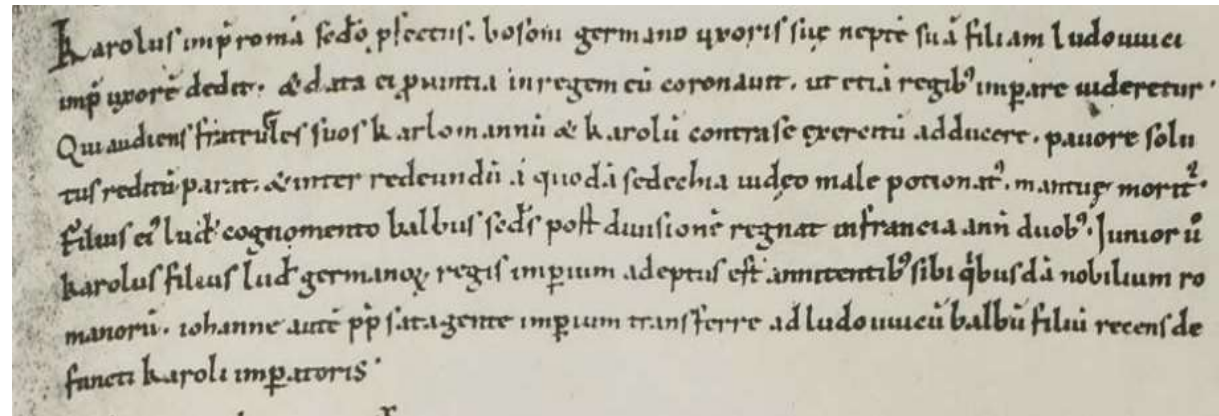 Karolus imp̄ romā sc̄do ꝓfectus. bosoni germano uxoris suę neptē suā filiam Ludouuici
imp̄ uxorē dedit. & data ei ꝓuintia in regem eū coronauit. ut etiā regibꝰ imꝑare uideretur.
Qui audiens fratrueles suos karlomannū & karolū contra se exercitū adducere. pauore solu
tus reditū parat. & inter redeundū a quodā sedechia iudęo male potionatꝰ. mantuę moritᷣ.
Filius eiꝰ lud̄ cognomento balbus sc̄ds post diuisionē regnat in francia ann̄ duobꝰ. Junior ū
karolus filius lud̄ germanoꝝ regis imꝑium adeptus est annitentibꝰ sibi qͥbusdā nobilium ro
manorū. iohanne autē pp̄ satagente imꝑium transferre ad ludouuicū balbū filiū recens de
functi karoli imꝑatoris.